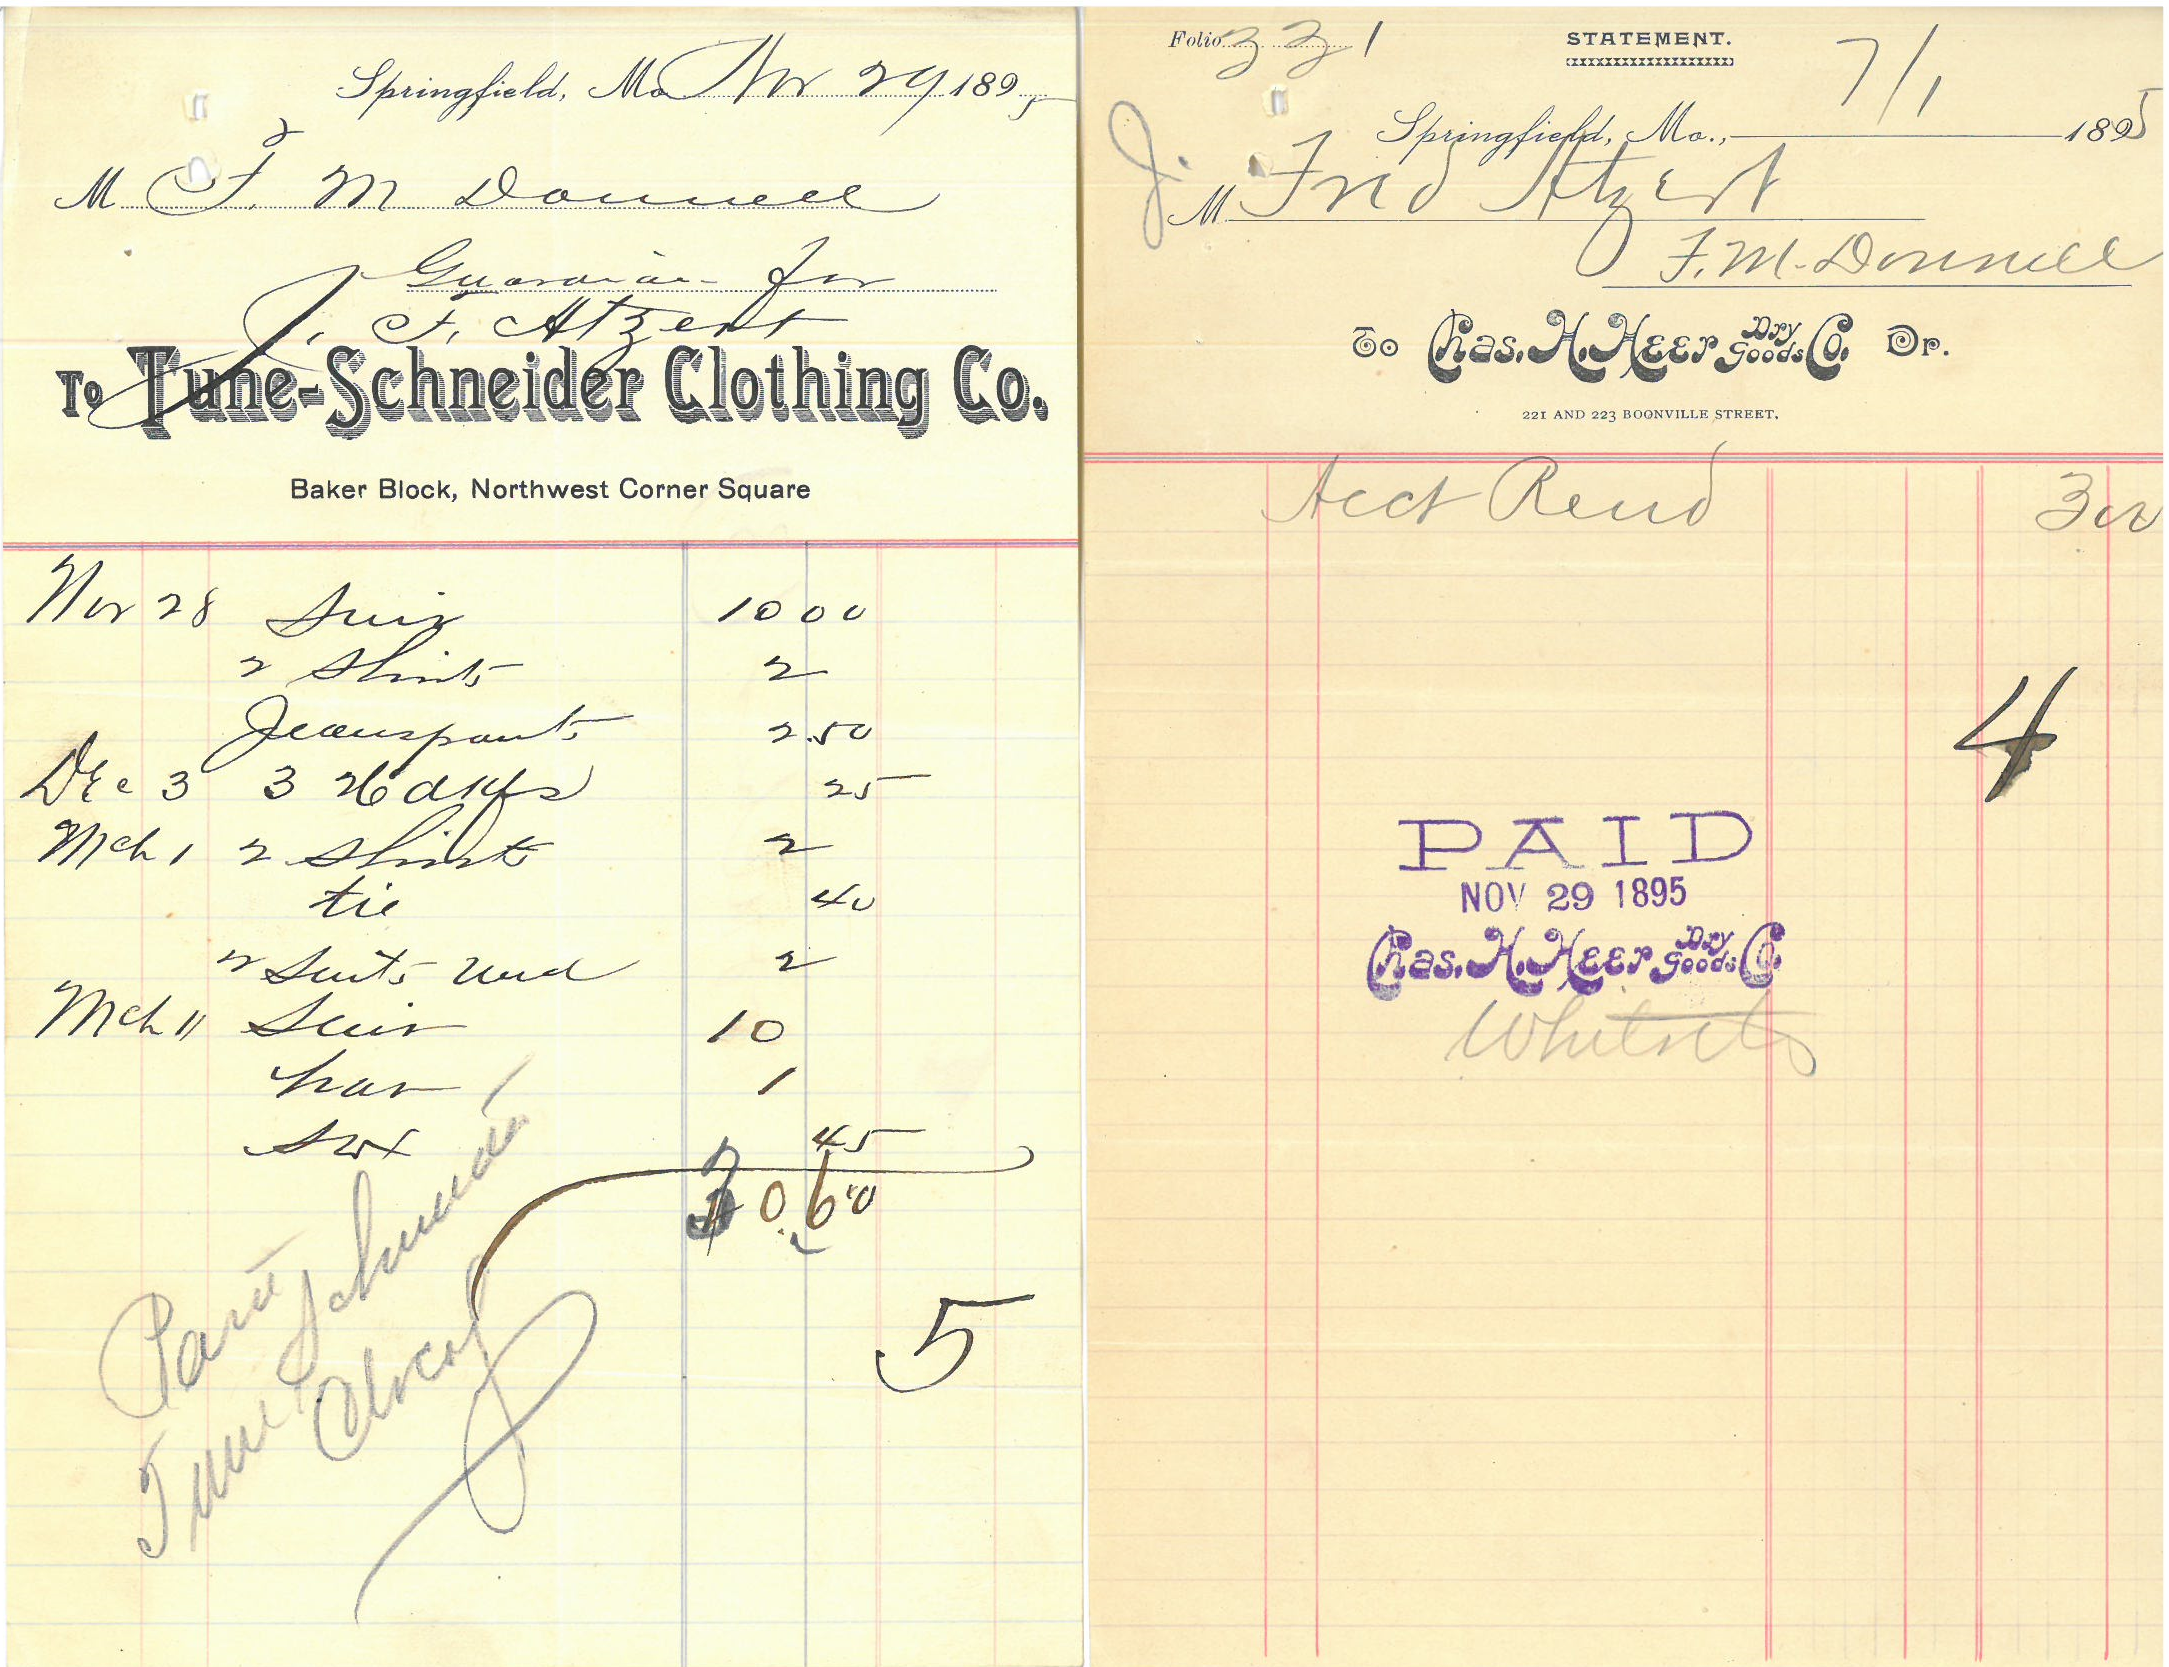 Springfield, Mo Nov 29 1895
M F. M Donnell
Guardian for
J. F. Atzert
To Tune-Schneider Clothing Co.
Baker Block, Northwest Corner Square
Nov 28 Suit 10 00
2 Shirts 2
Jeanspants 2.50
Dec 3 3 Hdkfs 25
Mch 1 2 Shirts 2
tie 40
2 Suits Und 2
Mch 11 Suit 10
hat 1
Sox 45
30.60
5
Paid
Tune Schneider
Folio 331
STATEMENT.
7/1
Springfield, Mo., 1895
J.
M Fred Atzert
F. M. Donnell
To Chas. H. Heer Dry Goods Co. Dr.
221 AND 223 BOONVILLE STREET.
Acct Rend 3 00
4
PAID
NOV 29 1895
Chas. H. Heer Dry Goods Co.